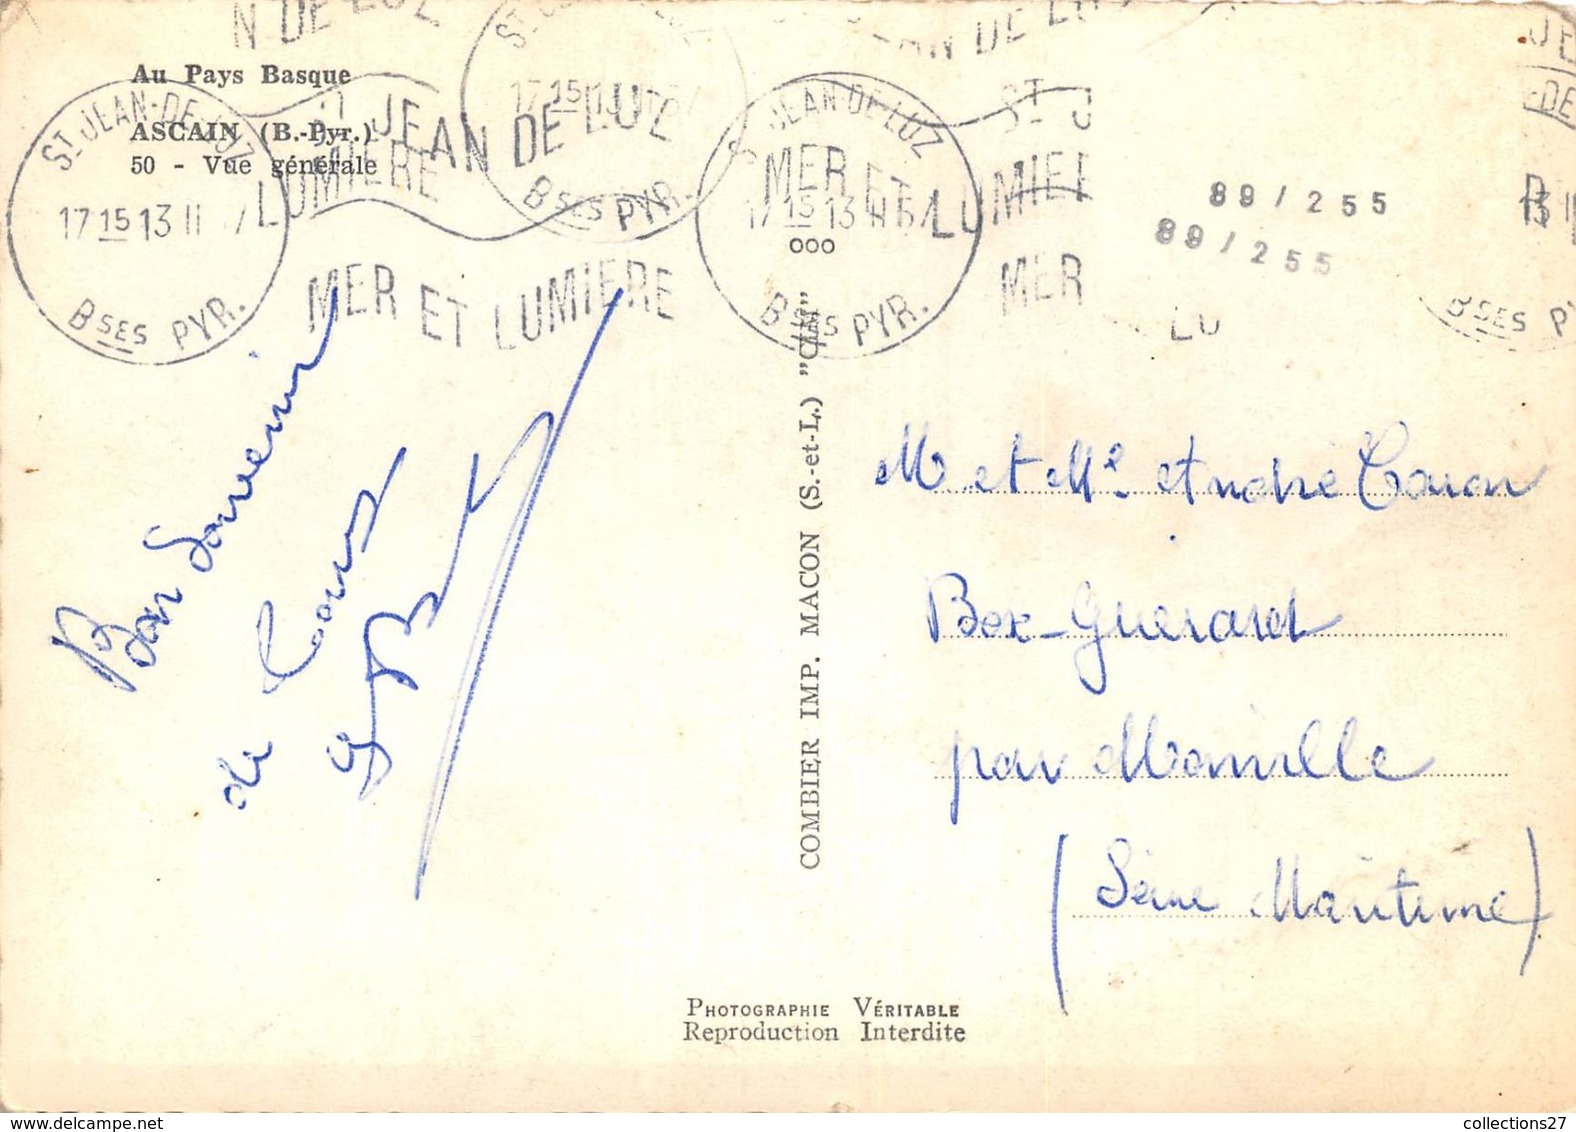 Au Pays Basque
ASCAIN (B.-Pyr.)
50 - Vue générale
N DE LUZ
ST JEAN-DE-LUZ
17 15 13 II
Bses PYR.
ST JEAN DE LUZ
LUMIERE
MER ET LUMIERE
17 15 13
Bses PYR.
JEAN DE LUZ
ST J
JEAN DE LUZ
MER ET LUMIER
17 15 13 II 6
Bses PYR.
MER
LU
89/255
89/255
13 II
Bses P
ooo
Bon Souvenir
de
COMBIER IMP. MACON (S.-et-L.) "CIM"
M et Me Andre Caron
Box-Guerard
par
(Seine Maritime)
PHOTOGRAPHIE VÉRITABLE
Reproduction Interdite
collections27